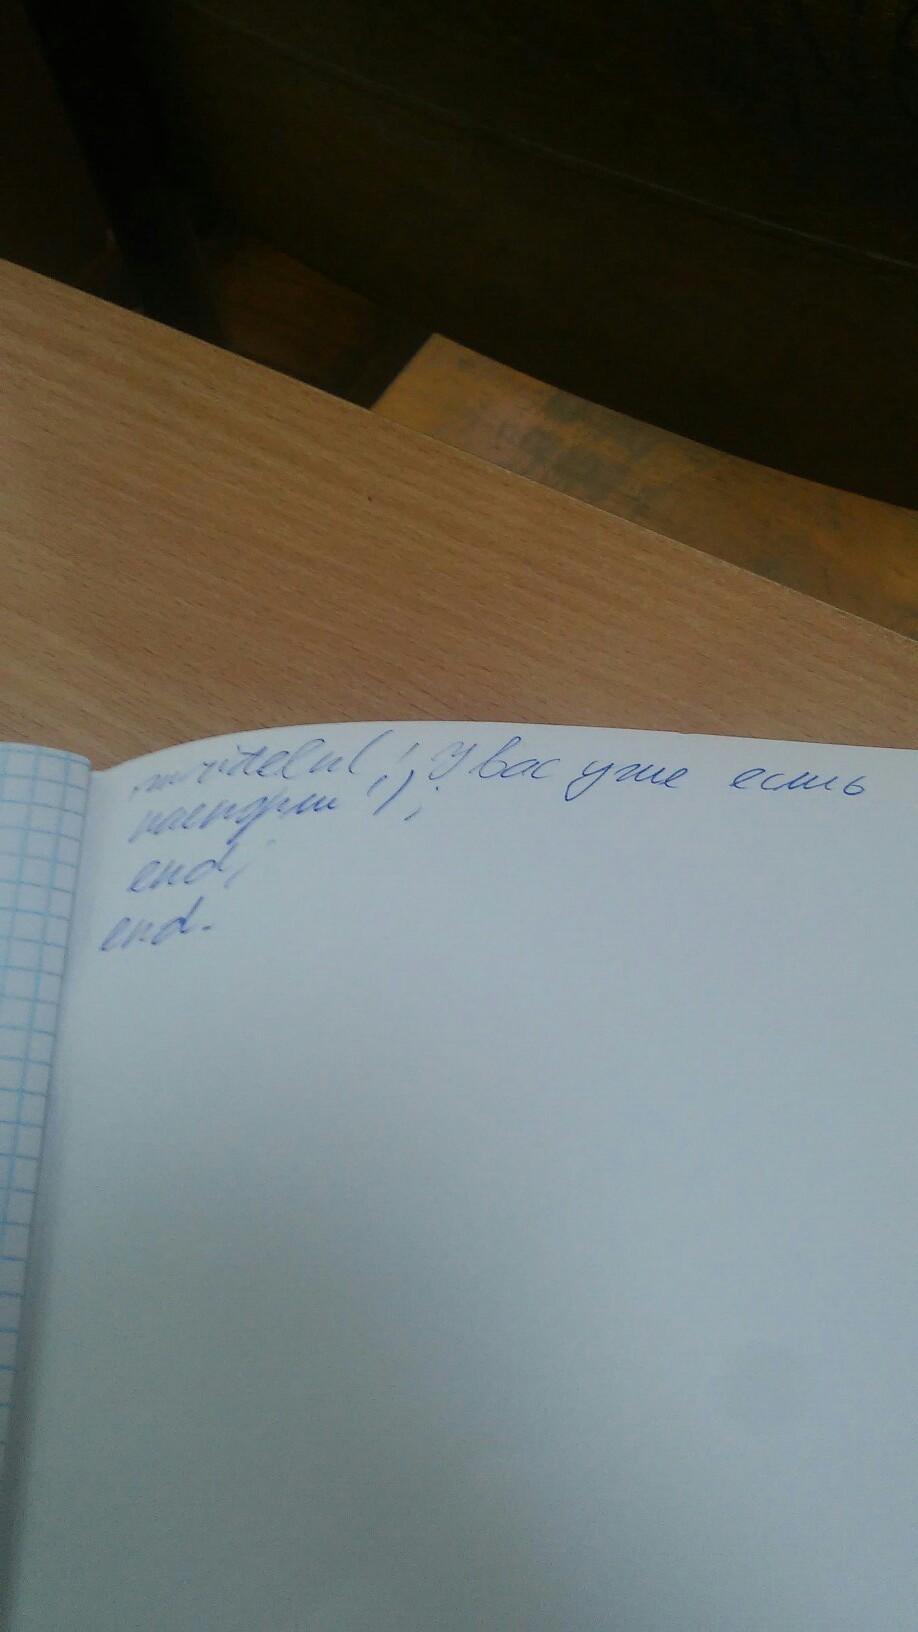 writeln('У вас уже есть
паспорт');
end;
end.